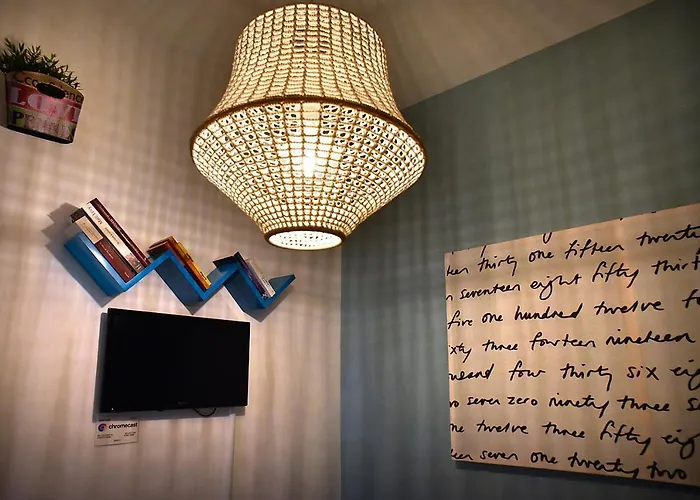 LOVE
chromecast
teen thirty one fifteen twenty
n seventeen eight fifty thirt
five one hundred twelve fo
ixty three fourteen nineteen
ousand four thirty six eig
ro seven zero ninety three s
ne twelve three fifty eig
teen seven one twenty two